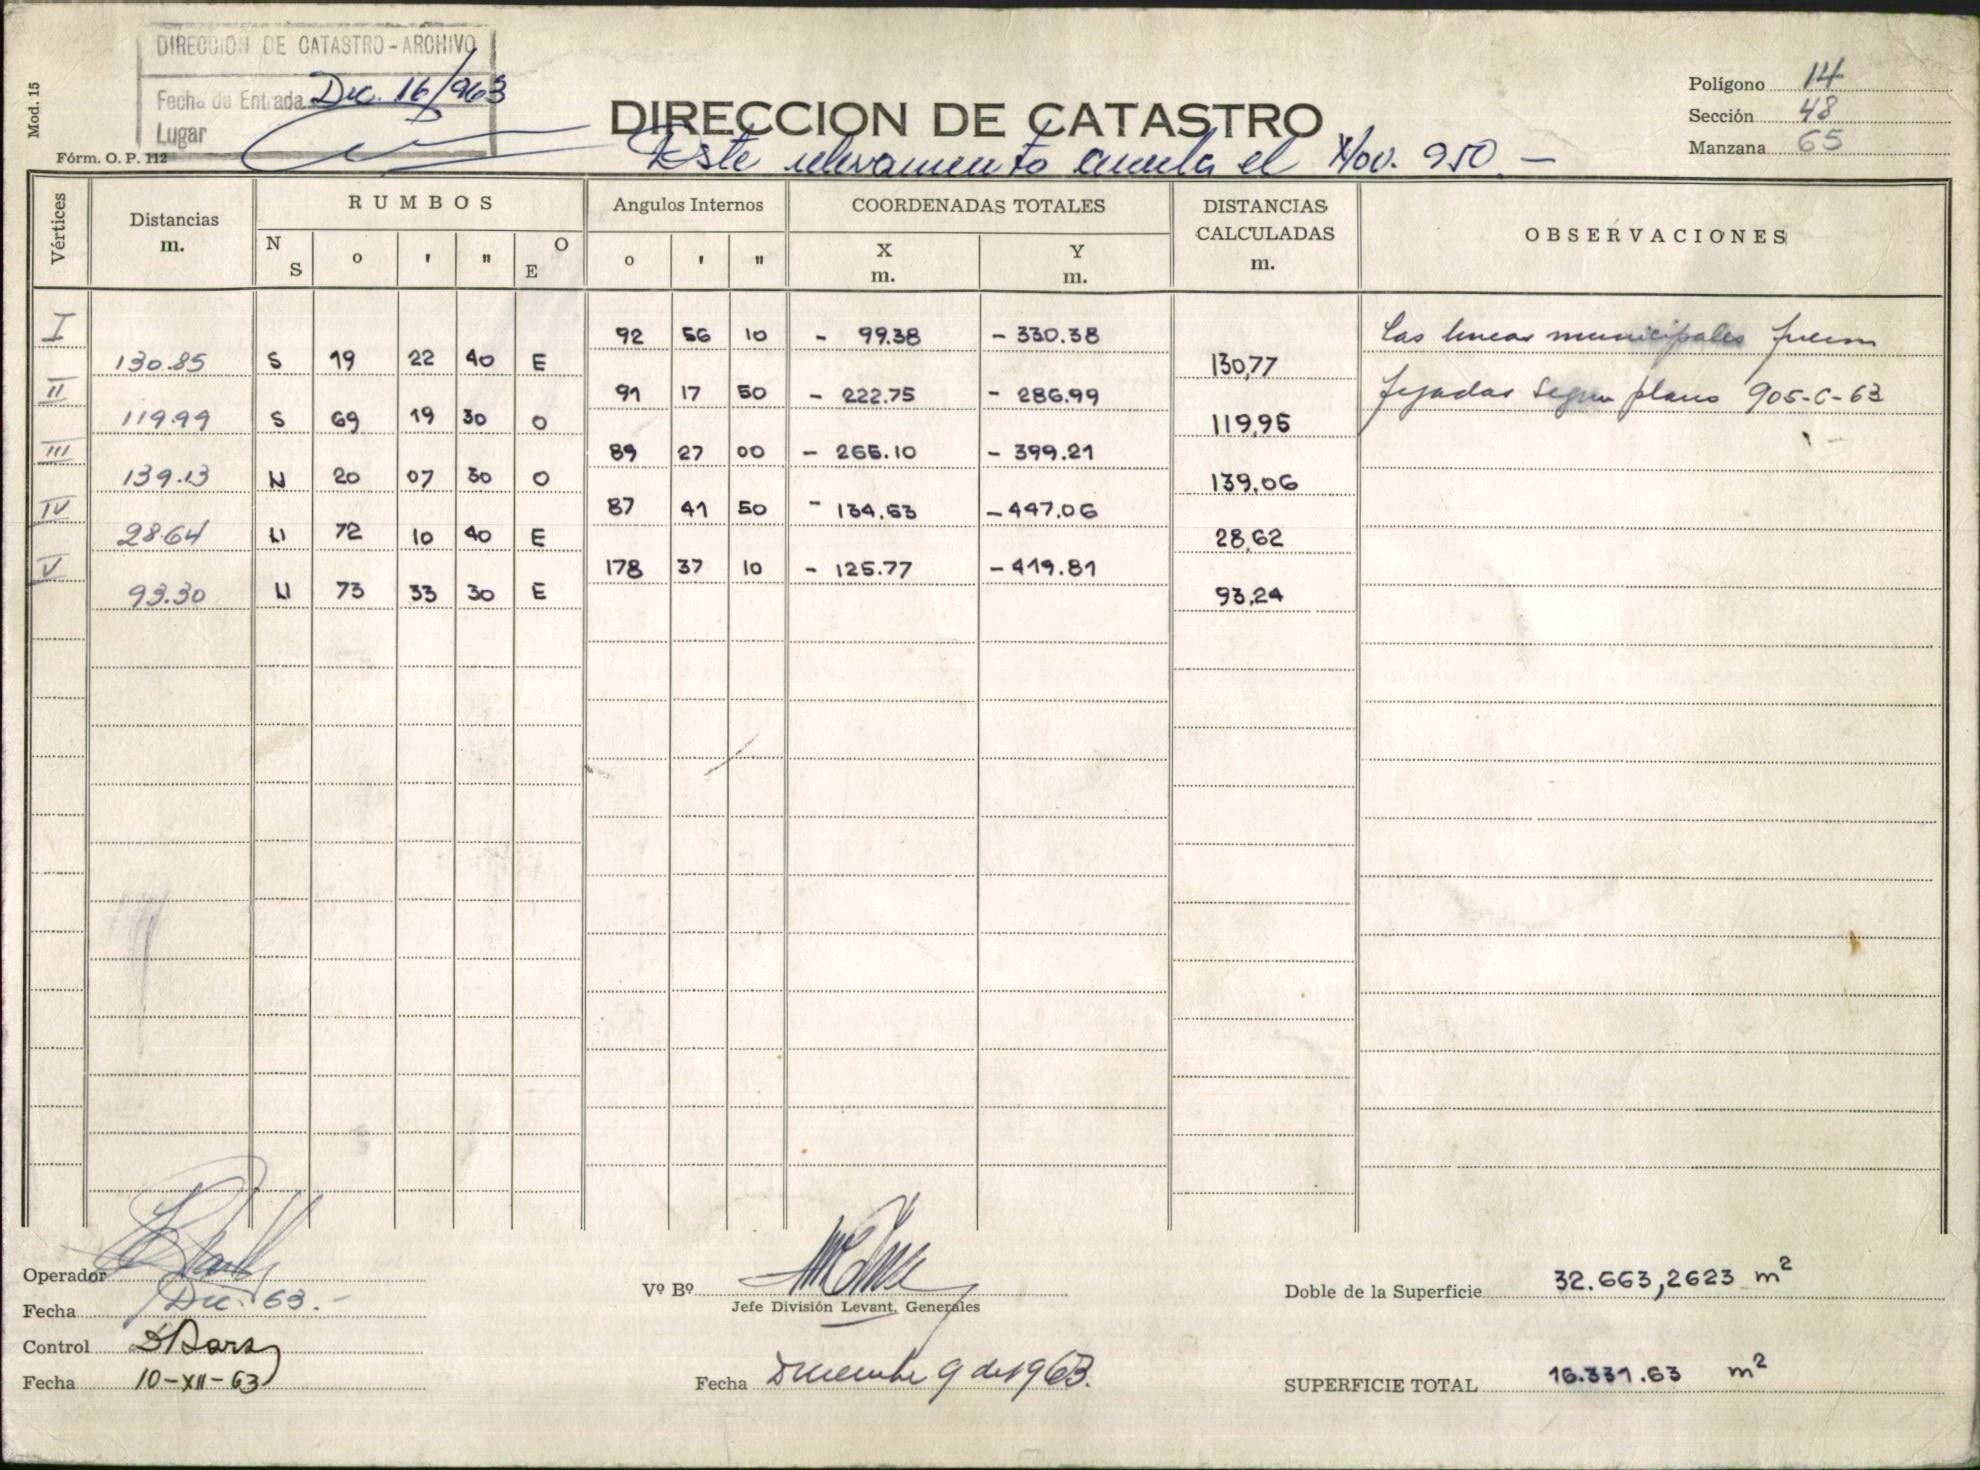 DIRECCION DE CATASTRO - ARCHIVO
Fecha de Entrada Dic. 16/963
Lugar
Mod. 15
Fórm. O. P. 112
DIRECCION DE CATASTRO
Este relevamiento anula el Nov. 950.-
Polígono 14
Sección 48
Manzana 65
Vértices Distancias m. RUMBOS N S o ' " E O Angulos Internos o ' " COORDENADAS TOTALES X m. Y m. DISTANCIAS CALCULADAS m. OBSERVACIONES
I 92 56 10 - 99.38 - 330.38 Las lineas municipales fueron
130.85 S 19 22 40 E 130,77
II 91 17 50 - 222.75 - 286.99 fijadas segun plano 905-C-63
119.99 S 69 19 30 O 119,95
III 89 27 00 - 265.10 - 399.21
139.13 N 20 07 30 O 139.06
IV 87 41 50 - 134.53 - 447.06
28.64 N 72 10 40 E 28,62
V 178 37 10 - 125.77 - 419.81
93.30 N 73 33 30 E 93,24
Operador
Fecha Dic. 63.-
Control
Fecha 10-XII-63
Vº Bº
Jefe División Levant. Generales
Fecha Diciembre 9 de 1963.
Doble de la Superficie 32.663,2623 m²
SUPERFICIE TOTAL 16.331.63 m²